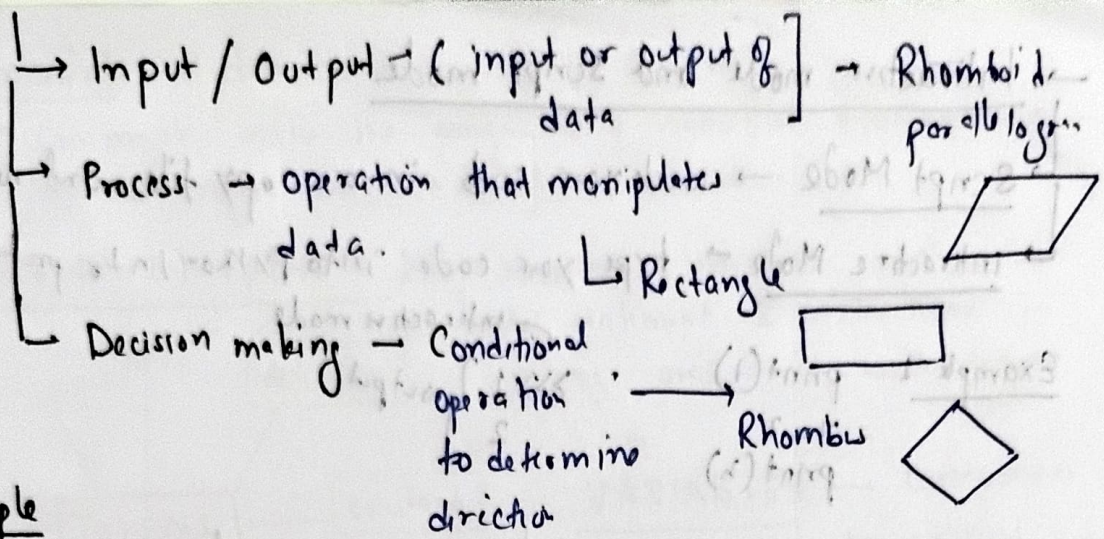 → Input / Output → ( input or output of ] → Rhomboid
data
parallelogram
→ Process. → operation that manipulates
data.
↳ Rectangle
→ Decision making – Conditional
operation → Rhombus
to determine
direction
ple